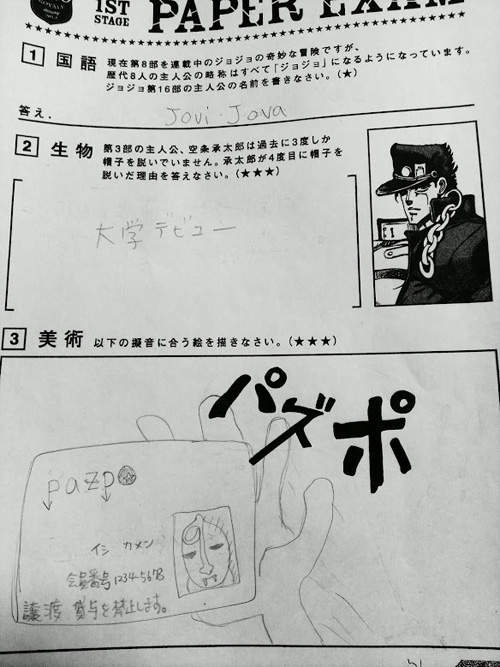 1ST STAGE
PAPER EXAM
1 国語 現在第8部を連載中のジョジョの奇妙な冒険ですが、
歴代8人の主人公の略称はすべて「ジョジョ」になるようになっています。
ジョジョ第16部の主人公の名前を書きなさい。(★)
答え. Jovi・Jova
2 生物 第3部の主人公、空条承太郎は過去に3度しか
帽子を脱いでいません。承太郎が4度目に帽子を
脱いだ理由を答えなさい。(★★★)
大学デビュー
3 美術 以下の擬音に合う絵を描きなさい。(★★★)
パズポ
pazpo
イシ カメン
会員番号12345678
譲渡 貸与を禁止します。